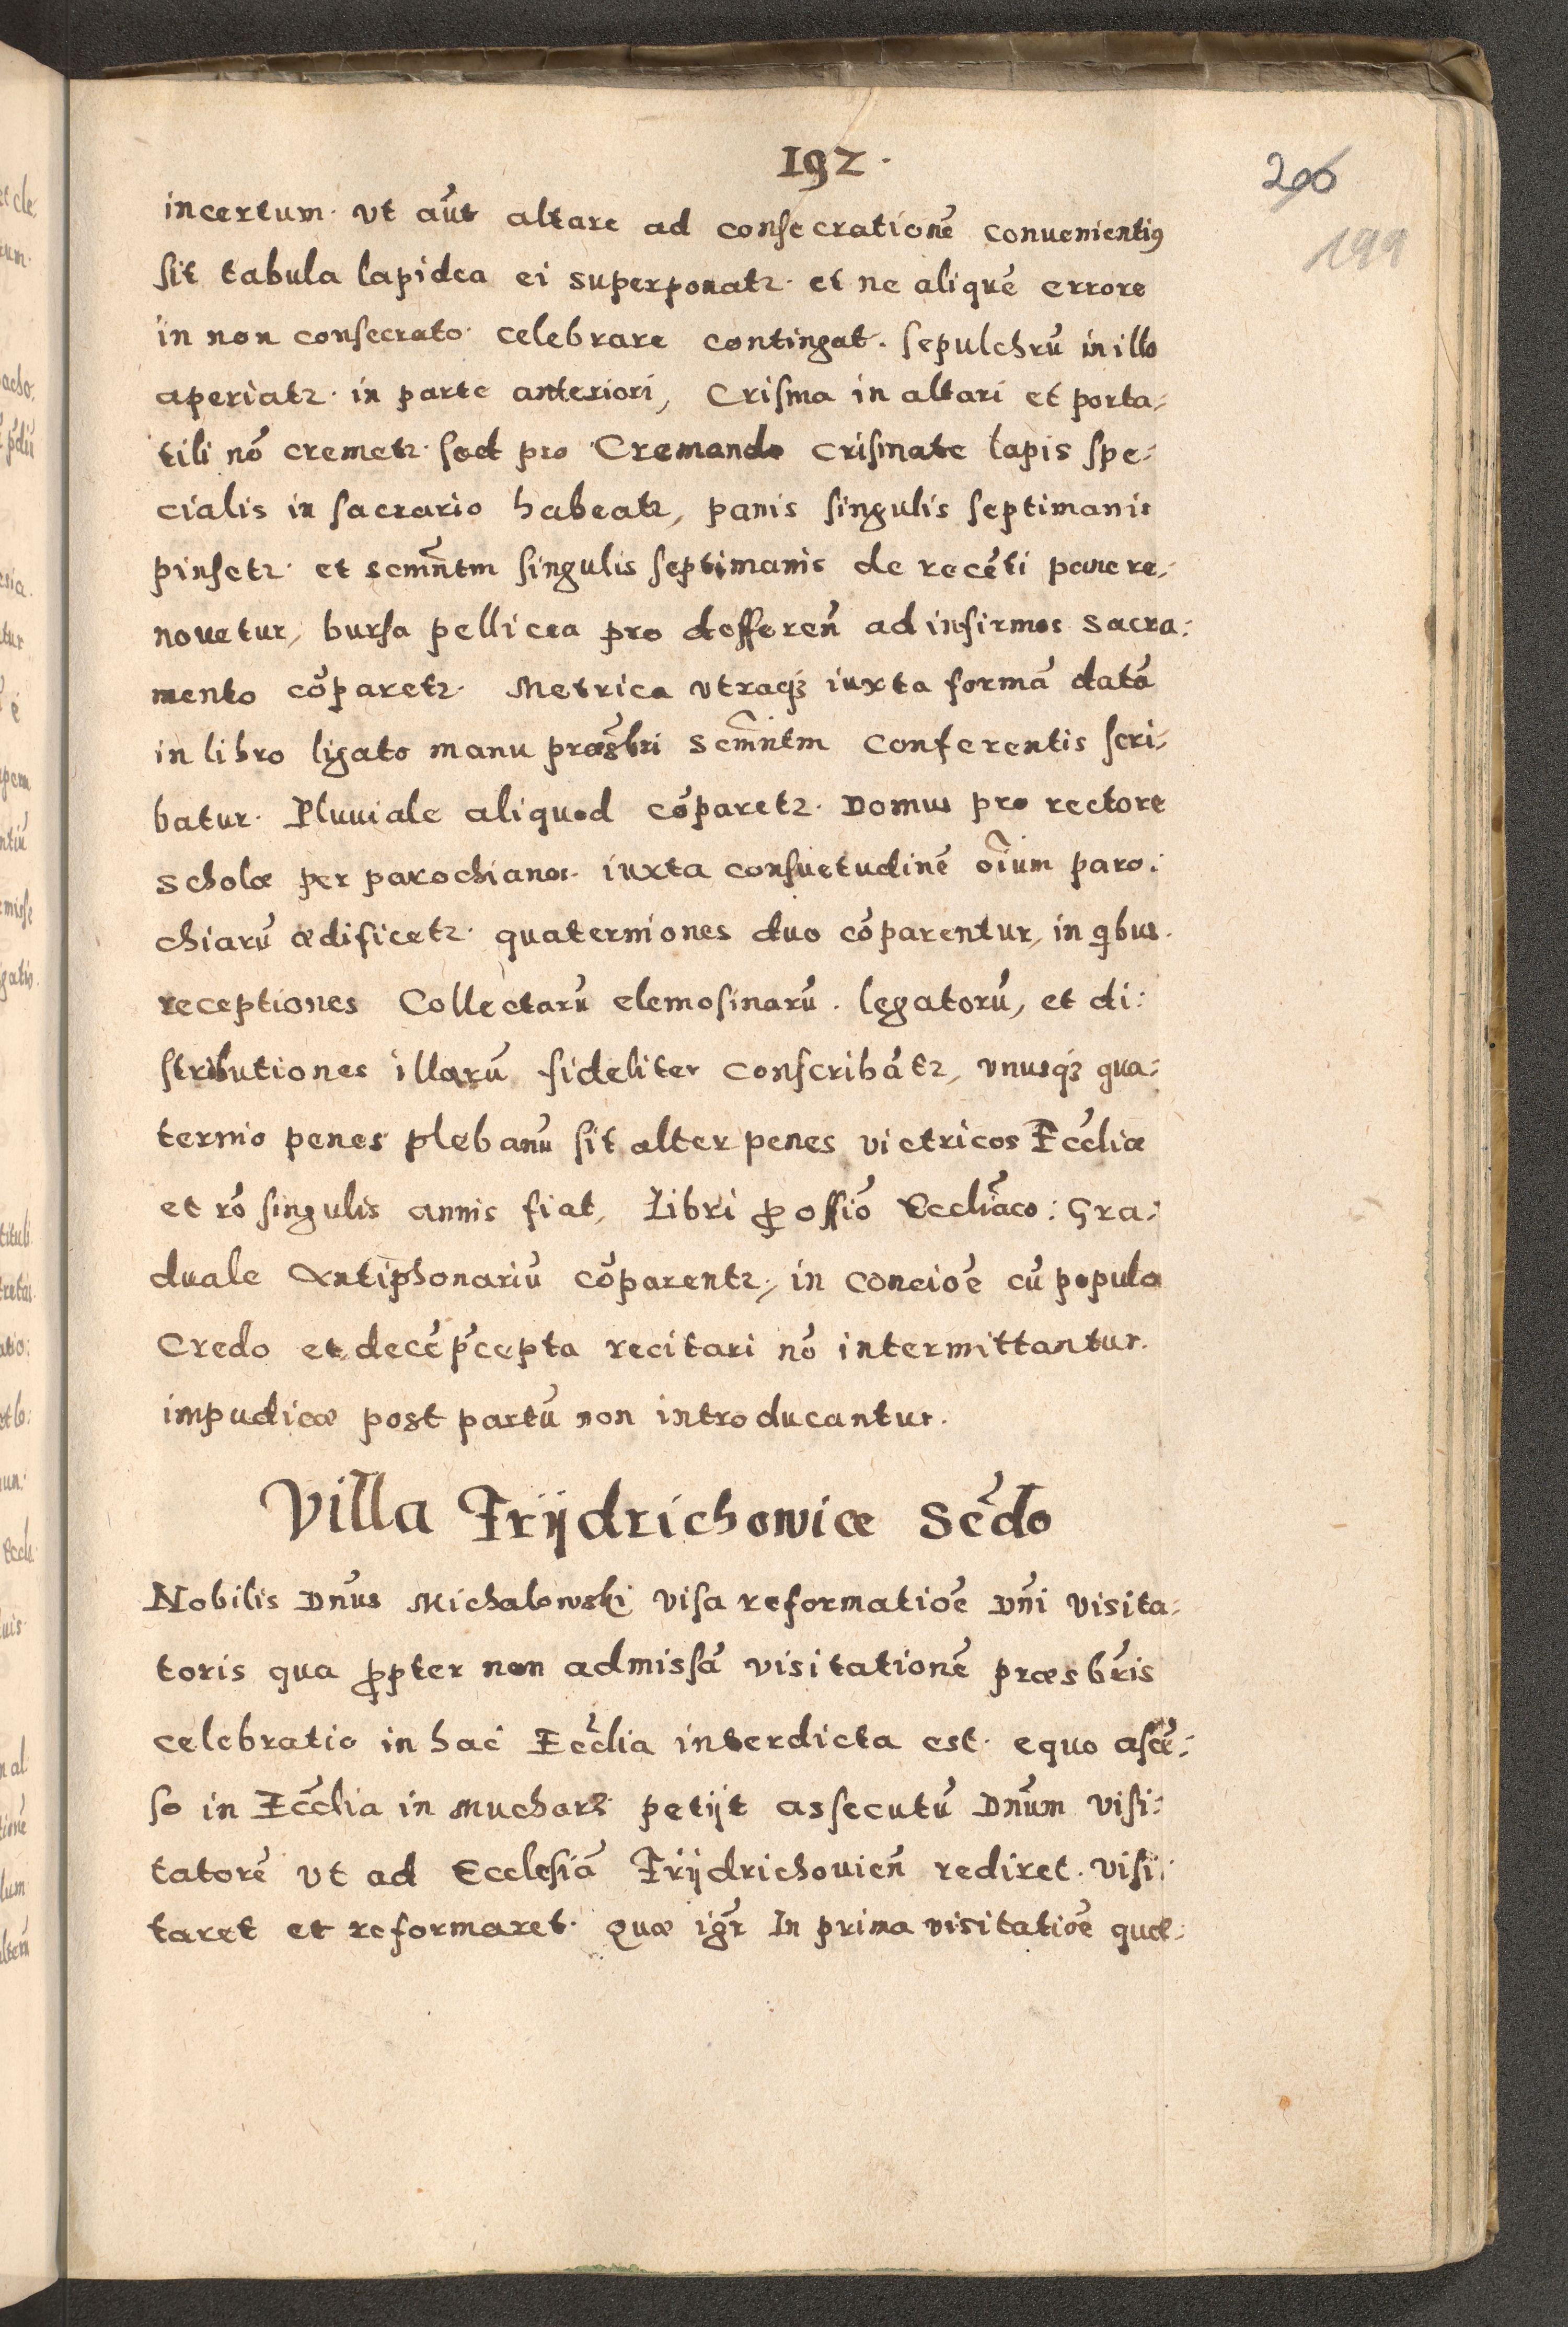 192.
206
199
incertum. vt aũt altare ad consecrationẽ conuenientiꝰ
sit tabula lapidea ei superponatꝛ. et ne aliquẽ errore
in non consecrato. celebrare contingat. sepulchrũ in illo
aperiatꝛ. in parte anteriori, Crisma in altari et porta⸗
tili nõ cremetꝛ. sed pro Cremando crismate lapis spe⸗
cialis in sacrario habeatꝛ, panis singulis septimanis
pinsetꝛ. et scmñtm singulis septimanis de recẽti pane re⸗
nouetur, bursa pellicea pro defferen̄ ad infirmos sacra⸗
mento cõparetꝛ. Metrica vtraqꝫ iuxta formã datã
in libro ligato manu præsb̃ri scmñtm conferentis scri⸗
batur. Pluuiale aliquod cõparetꝛ. Domus pro rectore
scholæ per parochianos. iuxta consuetudinẽ oĩum paro⸗
chiarũ ædificetꝛ. quaterniones duo cõparentur, in qibus.
receptiones Collectarũ elemosinarũ. legatorũ, et di⸗
stributiones illarũ fideliter conscribãtꝛ, vnusqꝫ qua⸗
ternio penes plebanũ sit alter penes victricos Eccl̃iæ
et rõ singulis annis fiat, Libri ꝓ offiõ Eccliãco: Gra⸗
duale Antiphonariũ cõparentꝛ, in concioẽ cũ populo
Credo et decẽ p̃cepta recitari nõ intermittantur.
impudicæ post partũ non introducantur.
Villa Frÿdrichowice Scd̃o
Nobilis Dñus Michalowski visa reformatioẽ Dñi visita⸗
toris qua ꝓpter non admissã visitationẽ præsb̃ris
celebratio in hac Eccl̃ia interdicta est. equo ascẽ⸗
so in Eccl̃ia in Mucharz petijt assecutũ Dñum visi⸗
tatorẽ vt ad Ecclesiã Frÿdrichouien̄ rediret. visi⸗
taret et reformaret. Quæ igr̃ In prima visitatioẽ quæ⸗